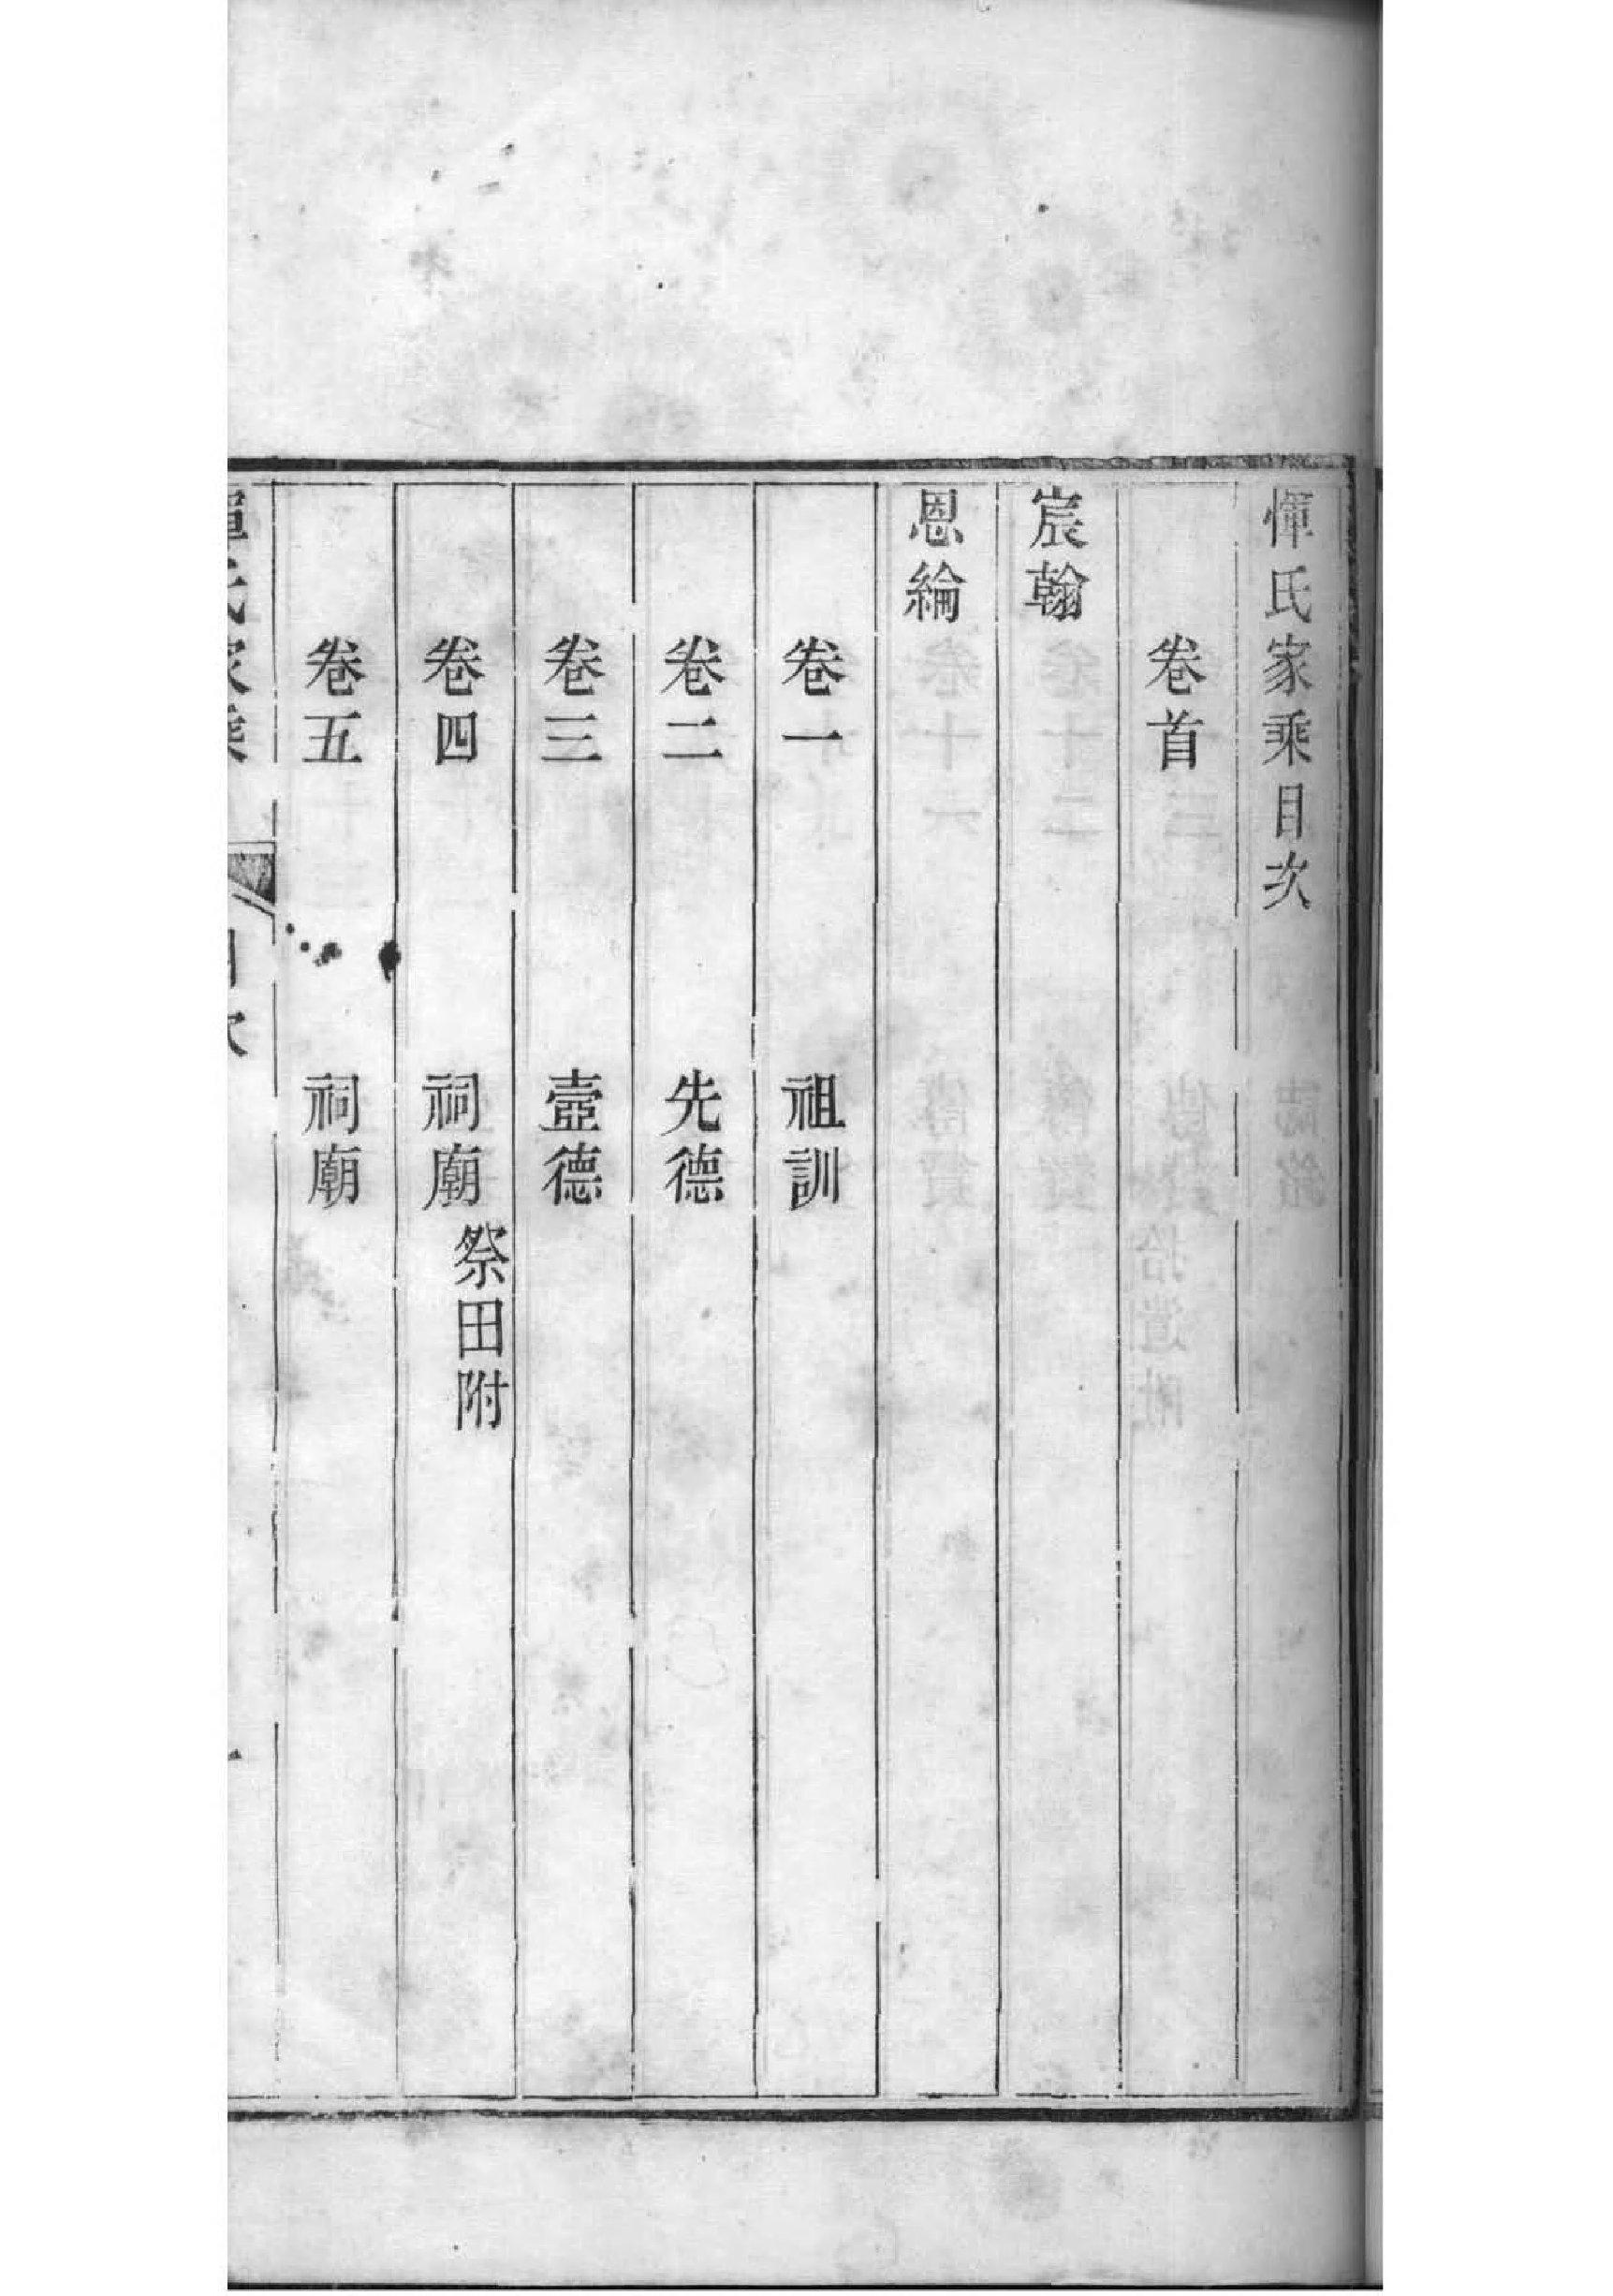 惲氏家乘目次
卷首
宸翰
恩綸
卷一 祖訓
卷二 先德
卷三 壼德
卷四 祠廟 祭田附
卷五 祠廟